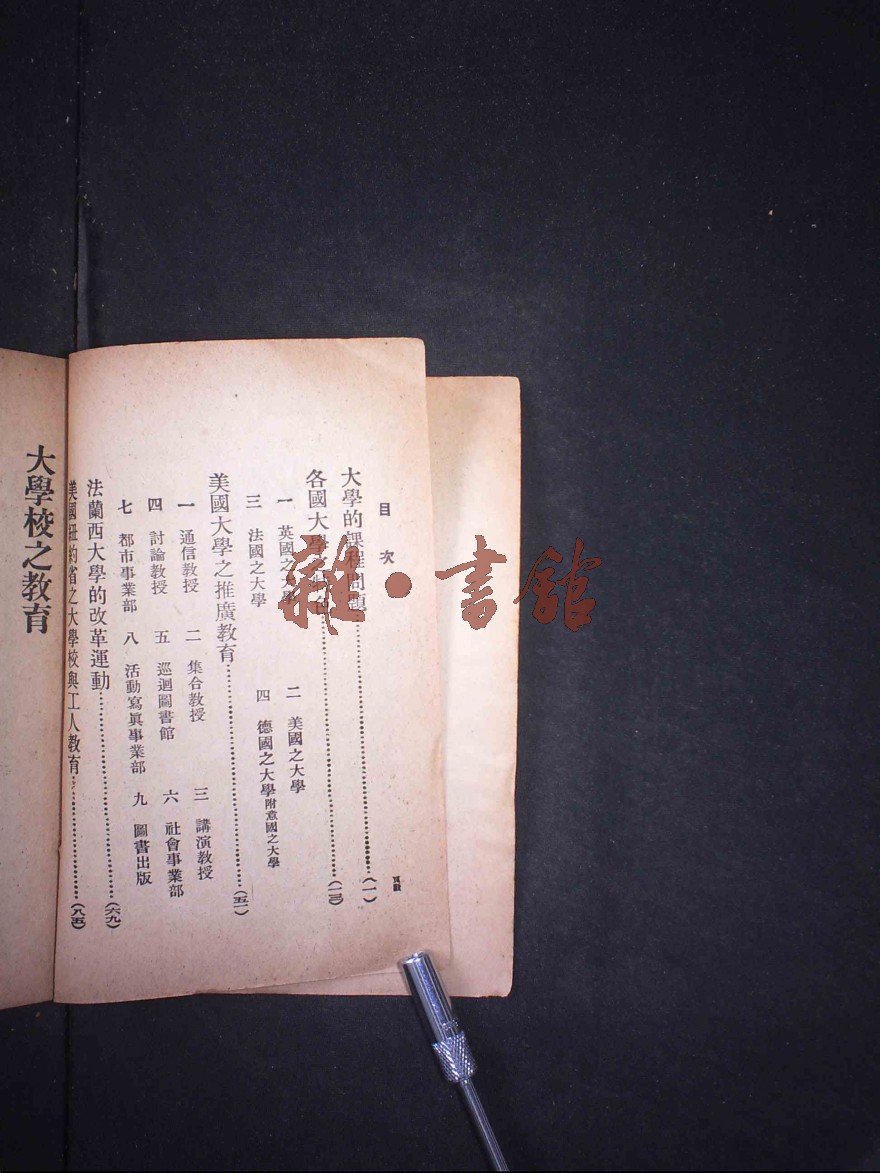 目次
頁數
大學的課程問題……(一)
各國大學之特色……(一三)
一 英國之大學 二 美國之大學
三 法國之大學 四 德國之大學附意國之大學
美國大學之推廣教育……(五一)
一 通信教授 二 集合教授 三 講演教授
四 討論教授 五 巡迴圖書館 六 社會事業部
七 都市事業部 八 活動寫眞事業部 九 圖書出版
法蘭西大學的改革運動……(六九)
美國紐約省之大學校與工人教育……(八五)
大學校之教育
雜·書館